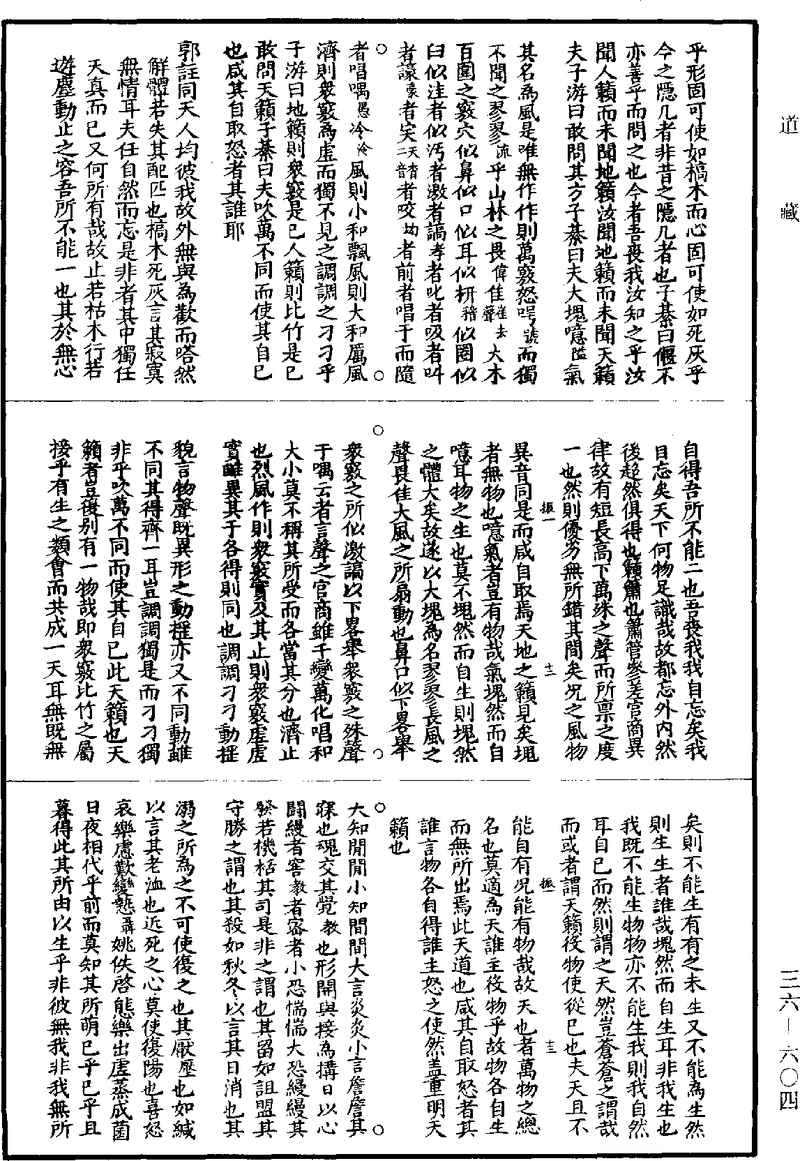 道藏
三六—六〇四
乎形固可使如槁木而心固可使如死灰乎
今之隱几者非昔之隱几者也子綦曰偃不
亦善乎而問之也今者吾喪我汝知之乎汝
聞人籟而未聞地籟汝聞地籟而未聞天籟
夫子游曰敢問其方子綦曰夫大塊噫隘氣
其名為風是唯無作作則萬竅怒呺號而獨
不聞之翏翏流乎山林之畏偉隹崔去聲大木
百圍之竅穴似鼻似口似耳似枅稽似圈似
臼似洼者似汚者激者謞孝者叱者吸者叫
者譹豪者宎二天音杳音者咬坳者前者唱于而隨
者唱喁愚泠泠風則小和飄風則大和厲風
濟則衆竅為虛而獨不見之調調之刁刁乎
子游曰地籟則衆竅是已人籟則比竹是已
敢問天籟子綦曰夫吹萬不同而使其自已
也咸其自取怒者其誰耶
郭註同天人均彼我故外無與為歡而嗒然
解體若失其配匹也槁木死灰言其寂寞
無情耳夫任自然而忘是非者其中獨任
天真而已又何所有哉故止若枯木行若
遊塵動止之容吾所不能一也其於無心
自得吾所不能二也吾喪我我自忘矣我
自忘矣天下何物足識哉故都忘外內然
後超然俱得也籟簫也簫管參差宮商異
律故有短長高下萬殊之聲而所稟之度
一也然則優劣無所錯其間矣況之風物
振一 十二
異音同是而咸自取焉天地之籟見矣塊
者無物也噫氣者豈有物哉氣塊然而自
噫耳物之生也莫不塊然而自生則塊然
之體大矣故遂以大塊為名翏翏長風之
聲畏隹大風之所扇動也鼻口似下畧舉
衆竅之所似激謞以下畧舉衆竅之殊聲
于喁云者言聲之宮商雖千變萬化唱和
大小莫不稱其所受而各當其分也濟止
也烈風作則衆竅實及其止則衆竅虛虛
實雖異其于各得則同也調調刁刁動搖
貌言物聲既異形之動搖亦又不同動雖
不同其得齊一耳豈調調獨是而刁刁獨
非乎吹萬不同而使其自已此天籟也夫
籟者豈復別有一物哉即衆竅比竹之屬
接乎有生之類會而共成一天耳無既無
矣則不能生有有之未生又不能為生然
則生生者誰哉塊然而自生耳非我生也
我既不能生物物亦不能生我則我自然
耳自已而然則謂之天然豈蒼蒼之謂哉
而或者謂天籟役物使從已也夫天且不
振一 十三
能自有況能有物哉故天也者萬物之總
名也莫適為天誰主役物乎故物各自生
而無所出焉此天道也咸其自取怒者其
誰言物各自得誰主怒之使然蓋重明天
籟也
大知閒閒小知間間大言炎炎小言詹詹其
寐也魂交其覺教也形開與接為搆日以心
鬪縵者窖教者密者小恐惴惴大恐縵縵其
發若機栝其司是非之謂也其留如詛盟其
守勝之謂也其殺如秋冬以言其日消也其
溺之所為之不可使復之也其厭壓也如緘
以言其老洫也近死之心莫使復陽也喜怒
哀樂慮歎變慹聶姚佚啓態樂出虛蒸成菌
日夜相代乎前而莫知其所萌已乎已乎旦
暮得此其所由以生乎非彼無我非我無所